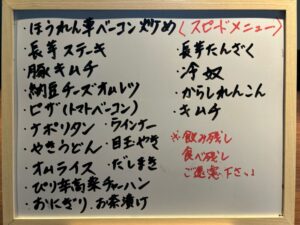 ・ほうれん草ベーコン炒め
・長芋ステーキ
・豚キムチ
・納豆チーズオムレツ
・ピザ(トマトベーコン)
・ナポリタン ・ウインナー
・やきうどん ・目玉やき
・オムライス ・だしまき
・ぴり辛高菜チャーハン
・おにぎり ・お茶漬け
(スピードメニュー)
・長芋たんざく
・冷奴
・からしれんこん
・キムチ
※飲み残し
食べ残し
ご遠慮下さい